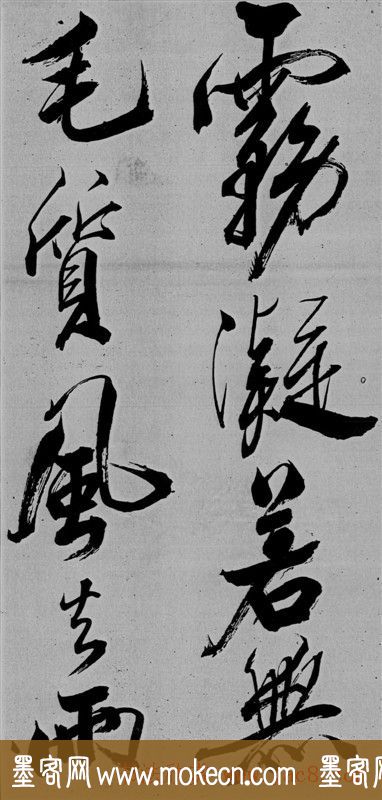 霧凝若無
毛質風
墨客网 www.mokecn.com